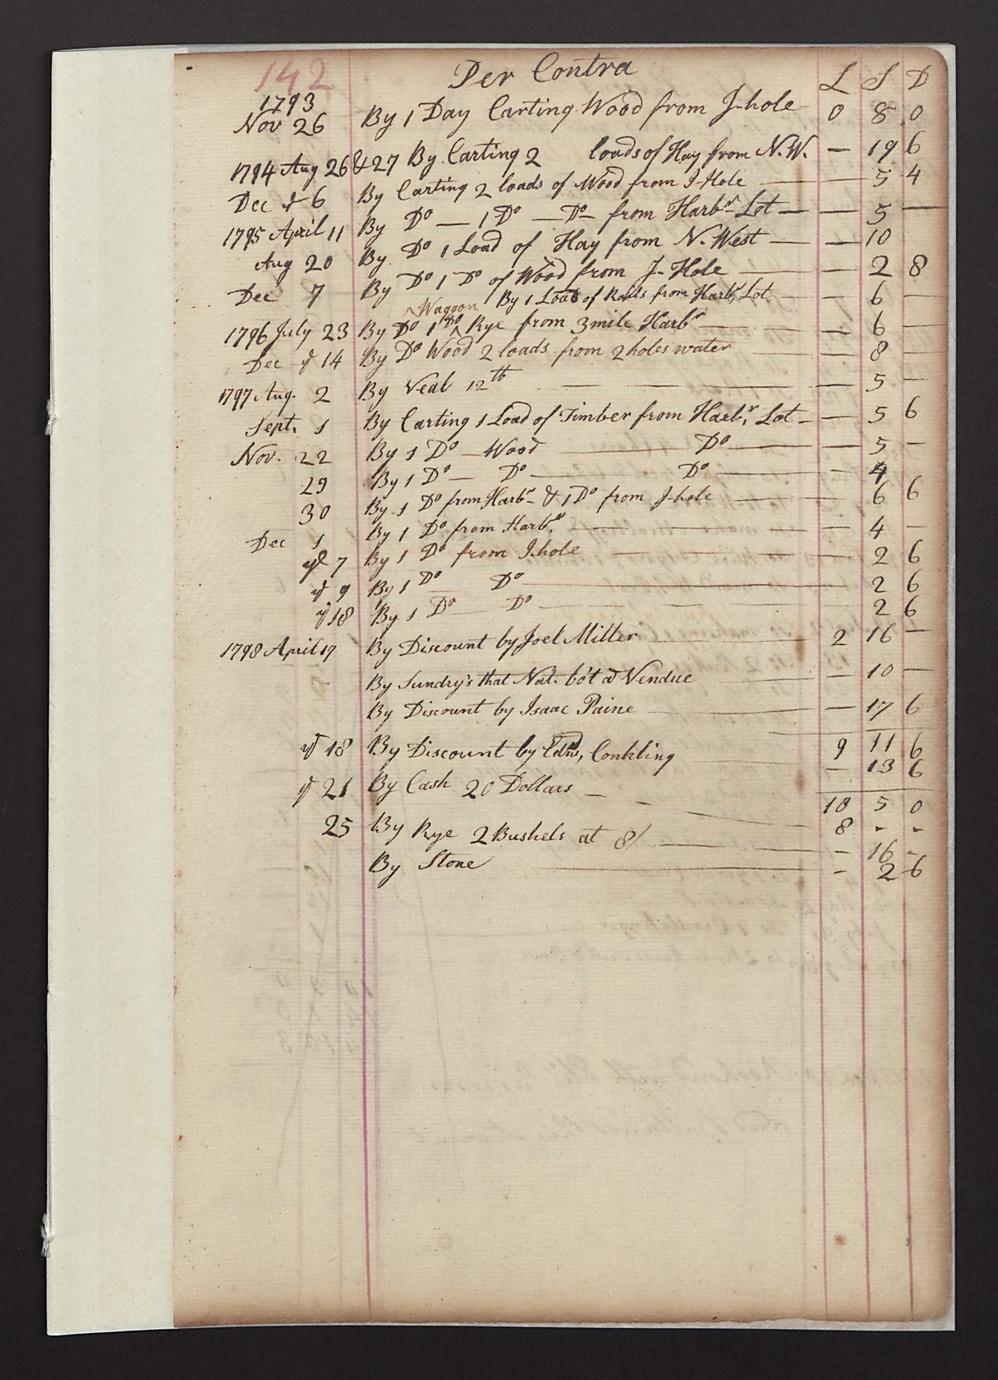 142 Per Contra L S D
1793
Nov 26 By 1 Day Carting Wood from J-hole 0 8 0
1794 Aug 26 & 27 By Carting 2 loads of Hay from N.W. — 19 6
Dec ye 6 By Carting 2 loads of Wood from J-Hole — 5 4
1795 April 11 By Do — 1 Do — Do — from Harbr Lot — — 5 —
Aug 20 By Do 1 Load of Hay from N. West — — 10
Dec 7 By Do 1 Do of Wood from J-Hole — — 2 8
By 1 Load of Rails from Harbr, Lot — 6 —
Waggon
1796 July 23 By Do 1 Do Rye from 3 mile Harbr — — 6 —
Dec ye 14 By Do Wood 2 loads from 2 holes water — 8 —
1797 Aug. 2 By Veal 12 tb — — — 5 —
Sept. 1 By Carting 1 Load of Timber from Harbr, Lot — — 5 6
Nov. 22 By 1 Do — Wood — Do — — 5 —
29 By 1 Do — Do — Do — — 4
30 By 1 Do from Harbr — & 1 Do from J-hole — — 6 6
Dec 1 By 1 Do from Harbr — — 4 —
ye 7 By 1 Do from J-hole — — 2 6
ye 9 By 1 Do Do — — 2 6
ye 18 By 1 Do Do — 2 6
1798 April 17 By Discount by Joel Miller 2 16 —
By Sundry's that Nat. bo't at Vendue — 10 —
By Discount by Isaac Paine — — 17 6
9 11 6
ye 18 By Discount by Edw, Conkling — 13 6
10 5 0
ye 21 By Cash 20 Dollars — 8 - -
25 By Rye 2 Bushels at 8/ — — 16 -
By Stone — - 2 6